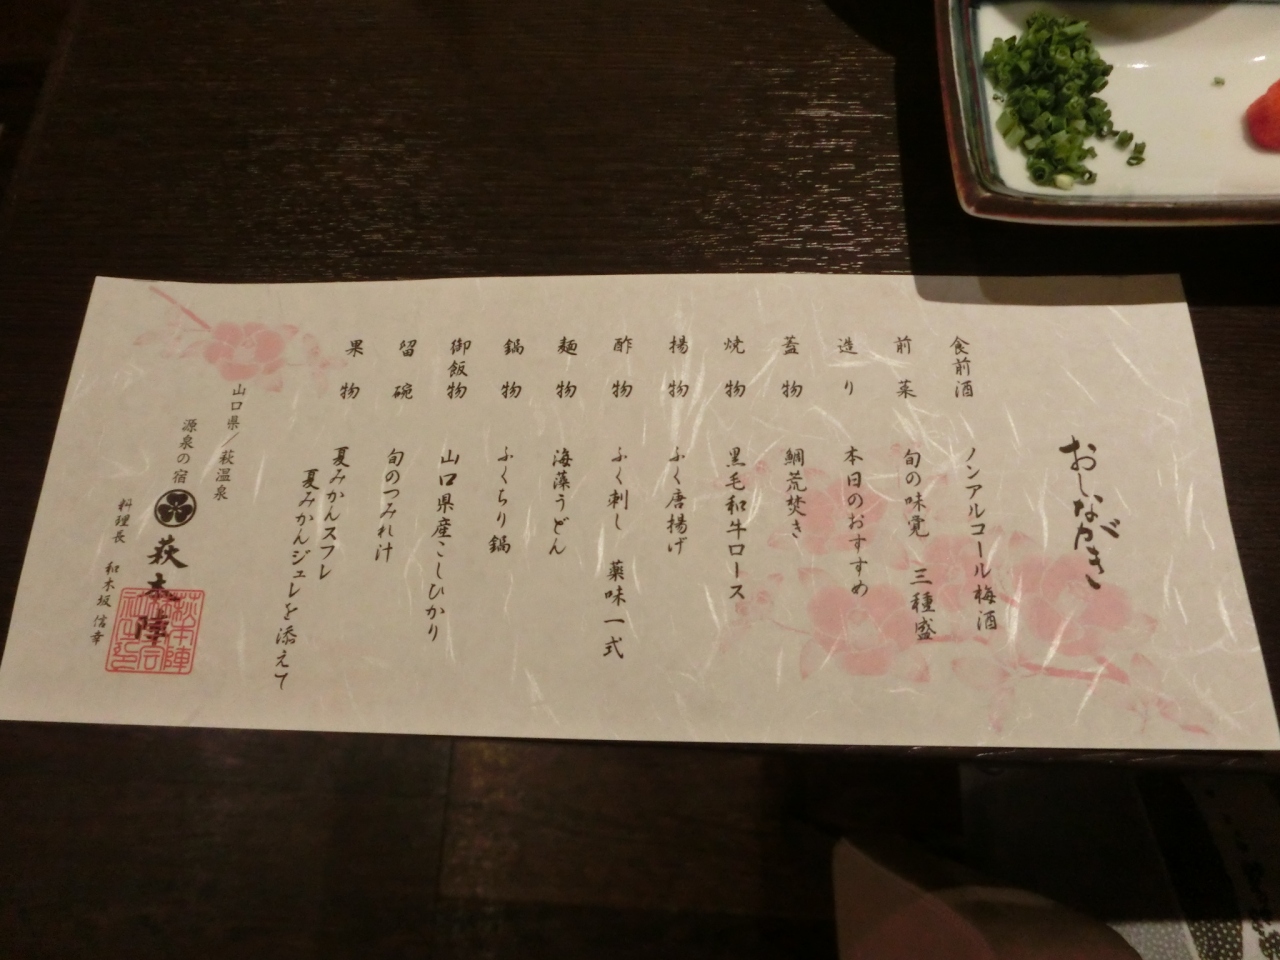 おしながき
食前酒 ノンアルコール梅酒
前菜 旬の味覚 三種盛
造り 本日のおすすめ
蓋物 鯛荒焚き
焼物 黒毛和牛ロース
揚物 ふく唐揚げ
酢物 ふく刺し 薬味一式
麺物 海藻うどん
鍋物 ふくちり鍋
御飯物 山口県産こしひかり
留碗 旬のつみれ汁
果物 夏みかんスフレ
夏みかんジュレを添えて
山口県/萩温泉
源泉の宿
萩本陣
料理長 和木坂 信幸